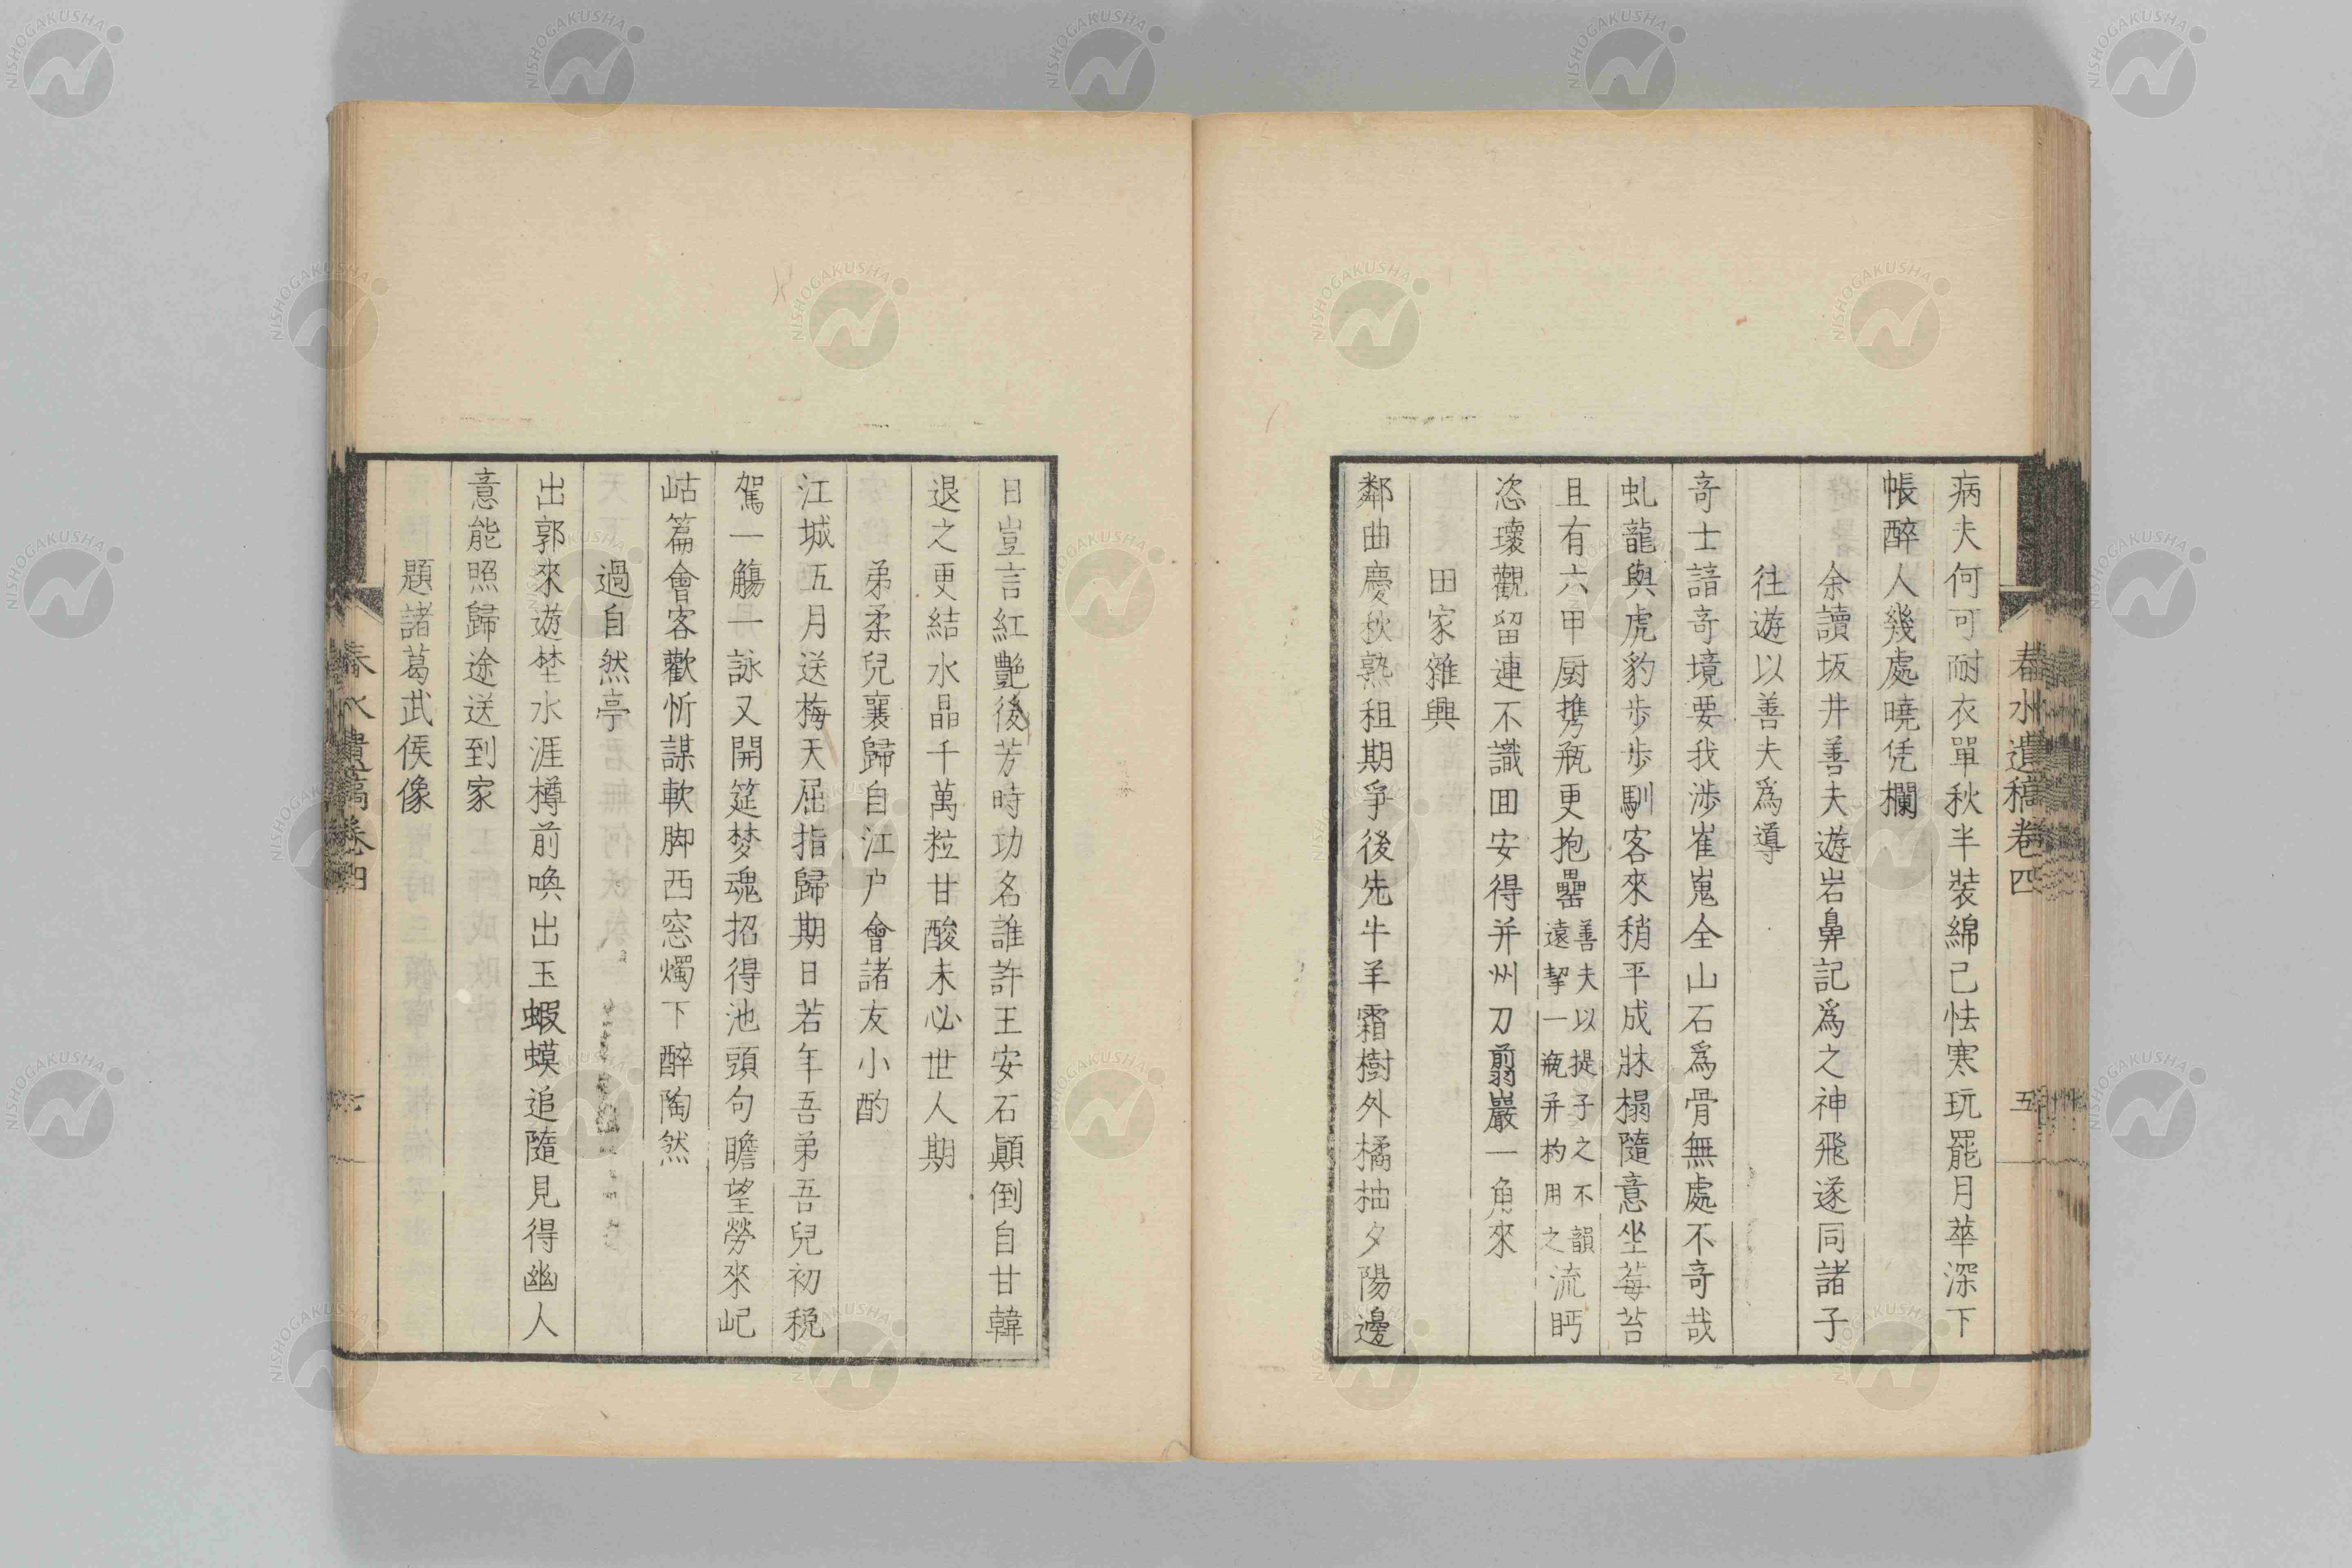 春水遺稿卷四
五
病夫何可耐衣單秋半裝綿已怯寒玩罷月華深下
帳醉人幾處曉凭欄
余讀坂井善夫遊岩鼻記爲之神飛遂同諸子
往遊以善夫爲導
奇士諳奇境要我渉崔嵬全山石爲骨無處不奇哉
虬龍與虎豹步步馴客來稍平成牀榻隨意坐莓苔
且有六甲厨携瓶更抱罍善夫以提子之不韻遠挈一瓶并杓用之流眄
恣瓌觀留連不識回安得并州刀剪巖一角來
田家雜興
鄰曲慶秋熟租期爭後先牛羊霜樹外橘柚夕陽邊
日豈言紅艷後芳時功名誰許王安石顚倒自甘韓
退之更結水晶千萬粒甘酸未必世人期
弟柔兒襄歸自江戶會諸友小酌
江城五月送梅天屈指歸期日若年吾弟吾兒初稅
駕一觴一詠又開筵梦魂招得池頭句瞻望勞來屺
岵篇會客歡忻謀軟脚西窓燭下醉陶然
過自然亭
出郭來遊埜水涯樽前喚出玉蝦蟆追隨見得幽人
意能照歸途送到家
題諸葛武侯像
春水遺稿卷四
NISHOGAKUSHA